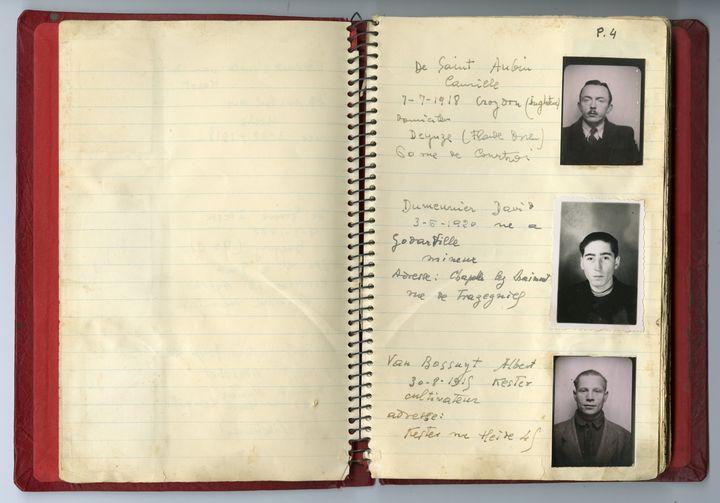 P.4
De Saint Aubin
Camille
7-7-1918 Croydon (Angleterre)
Deynze (Flandre Orien)
60 rue de Courtrai
Dumeunier David
3-6-1920 ne a
Godarville
mineur
Adresse: Chapelle lez Herlaimont
rue de Trazegnies
Van Bossuyt Albert
30-8-1915 Kester
cultivateur
adresse:
Kester rue Heide 45